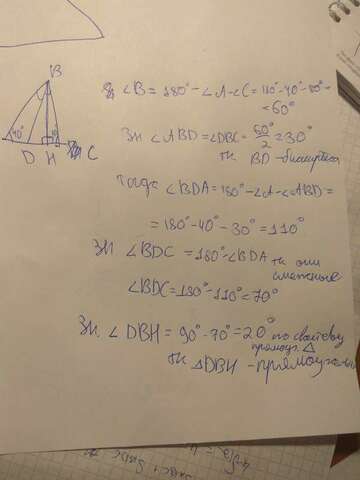 B
40°
D H C
∠B = 180° - ∠A - ∠C = 180° - 40° - 80° =
= 60°
Зн ∠ABD = ∠DBC = 60°/2 = 30°
тк BD - биссектриса
Тогда ∠BDA = 180° - ∠A - ∠ABD =
= 180° - 40° - 30° = 110°
Зн ∠BDC = 180° - ∠BDA тк они
смежные
∠BDC = 180° - 110° = 70°
Зн. ∠DBH = 90° - 70° = 20° по свойству
прямоуг. △
тк △DBH - прямоуголь